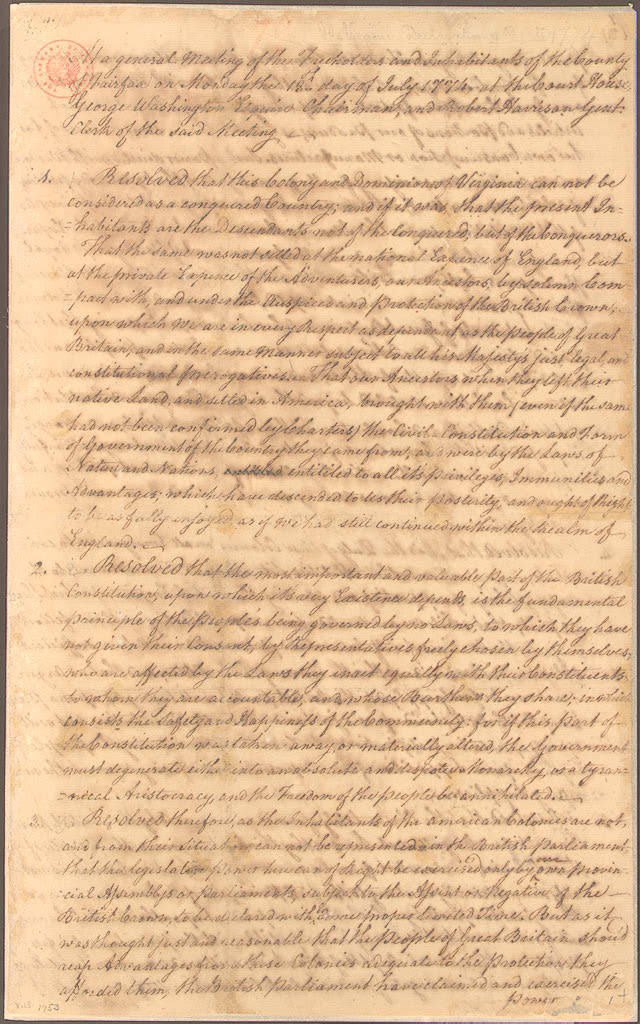 At a general Meeting of the Freeholders and Inhabitants of the County
of Fairfax on Monday the 18th day of July 1774, at the Court House,
George Washington Esquire Chairman, and Robert Harrison Gent.
Clerk of the said Meeting
1. Resolved that this Colony and Dominion of Virginia can not be
considered as a conquered Country; and if it was, that the present In-
-habitants are the Descendants not of the Conquered, but of the Conquerors.
That the same was not setled at the national Expence of England, but
at the private Expence of the Adventurers, our Ancestors, by solemn Com-
=pact with, and under the Auspices and Protection of the British Crown;
upon which we are in every Respect as dependant as the People of Great
Britain, and in the same Manner subject to all his Majesty's just, legal, and
constitutional Prerogatives. That our Ancestors, when they left their
native Land, and setled in America, brought with them (even if the same
had not been confirmed by Charters) the Civil-Constitution and Form
of Government of the Country they came from; and were by the Laws of
Nature and Nations, entitiled to all it's Privileges, Immunities and
Advantages; which have descended to us their Posterity, and ought of Right
to be as fully enjoyed, as if we had still continued within the Realm of
England.
2. Resolved that the most important and valuable Part of the British
Constitution, upon which it's very Existence depends, is the fundamental
Principle of the People's being governed by no Laws, to which they have
not given their Consent, by Representatives freely chosen by themselves;
who are affected by the Laws they enact equally with their Constituents;
to whom they are accountable, and whose Burthens they share; in which
consists the Safety and Happiness of the Community: for if this Part of
the Constitution was taken away, or materially altered, the Government
must degenerate either into an absolute and despotic Monarchy, or a tyran-
=nical Aristocracy, and the Freedom of the People be annihilated.
3. Resolved therefore, as the Inhabitants of the american Colonies are not,
and from their Situation can not be represented in the British Parliament,
that the legislative Power here can of Right be exercised only by our own Provin-
-cial Assemblys or Parliaments, subject to the Assent or Negative of the
British Crown, to be declared within some proper limited Time. But as it
was thought just and reasonable that the People of Great Britain should
reap Advantages from these Colonies adequate to the Protection they
afforded them, the British Parliament have claimed and exercised the
Power
1753